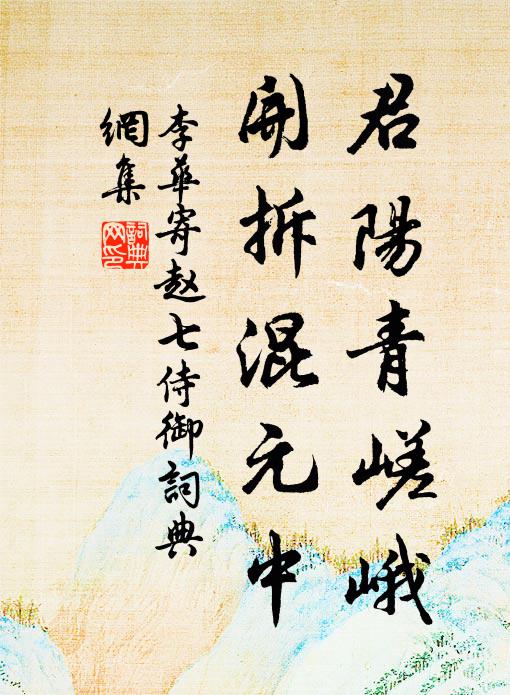 君陽青嵯峨
開拆混元中
李華寄赵七侍御詞典
網集
詞典
网印